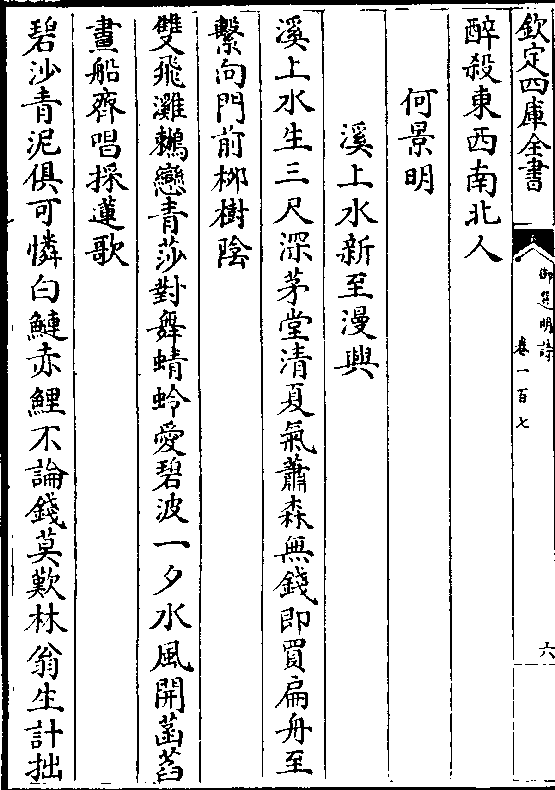 欽定四庫全書
御選明詩
卷一百七
六
醉殺東西南北人
何景明
溪上水新至漫興
溪上水生三尺深茅堂清夏氣蕭森無錢即買扁舟至
繫向門前栁樹陰
雙飛灘鶒戀青莎對舞蜻蛉愛碧波一夕水風開菡萏
畫船齊唱採蓮歌
碧沙青泥俱可憐白鰱赤鯉不論錢莫歎林翁生計拙